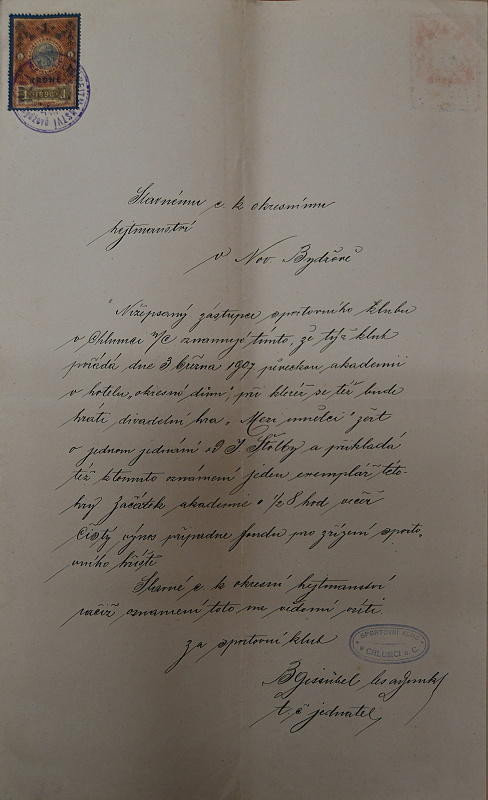 1
KRONE
1898
Slavnému c. k okresnímu
hejtmanství
v Nov. Bydžově
Nížepsaný zástupce sportovního klubu
v Chlumci n/C oznamuje tímto, že týž klub
pořádá dne 3 března 1907 pěveckou akademii
v hotelu „okresní dům", při kteréž se též bude
hráti divadelní hra „Mezi umělci" žert
o jednom jednání od J. Štolby a přikládá
též k tomuto oznámení jeden exemplář této
hry Začátek akademie o ½ 8 hod večer
Čistý výnos připadne fondu pro zřízení sporto-
vního hřiště
Slavné c. k okresní hejtmanství
račiž oznámení toto na vědomí vzíti.
za sportovní klub
SPORTOVNÍ KLUB
v CHLUMCI n. C.
t č jednatel